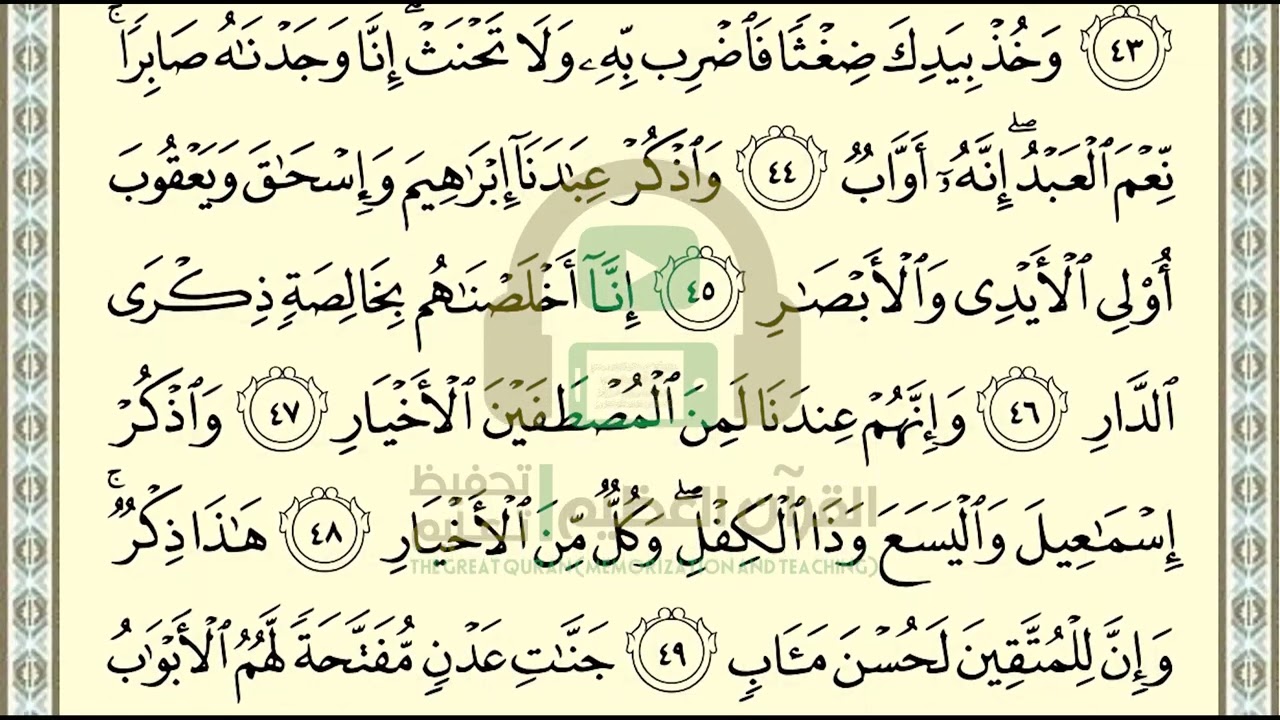 ٤٣ وَخُذْ بِيَدِكَ ضِغْثًا فَٱضْرِب بِّهِۦ وَلَا تَحْنَثْ ۗ إِنَّا وَجَدْنَـٰهُ صَابِرًا ۚ
نِّعْمَ ٱلْعَبْدُ ۖ إِنَّهُۥٓ أَوَّابٌ ٤٤ وَٱذْكُرْ عِبَـٰدَنَآ إِبْرَٰهِيمَ وَإِسْحَـٰقَ وَيَعْقُوبَ
أُو۟لِى ٱلْأَيْدِى وَٱلْأَبْصَـٰرِ ٤٥ إِنَّآ أَخْلَصْنَـٰهُم بِخَالِصَةٍ ذِكْرَى
ٱلدَّارِ ٤٦ وَإِنَّهُمْ عِندَنَا لَمِنَ ٱلْمُصْطَفَيْنَ ٱلْأَخْيَارِ ٤٧ وَٱذْكُرْ
القرآن العظيم | تحفيظ تعليم
إِسْمَـٰعِيلَ وَٱلْيَسَعَ وَذَا ٱلْكِفْلِ ۖ وَكُلٌّ مِّنَ ٱلْأَخْيَارِ ٤٨ هَـٰذَا ذِكْرٌ ۚ
THE GREAT QURAN (MEMORIZATION AND TEACHING)
وَإِنَّ لِلْمُتَّقِينَ لَحُسْنَ مَـَٔابٍ ٤٩ جَنَّـٰتِ عَدْنٍ مُّفَتَّحَةً لَّهُمُ ٱلْأَبْوَٰبُ